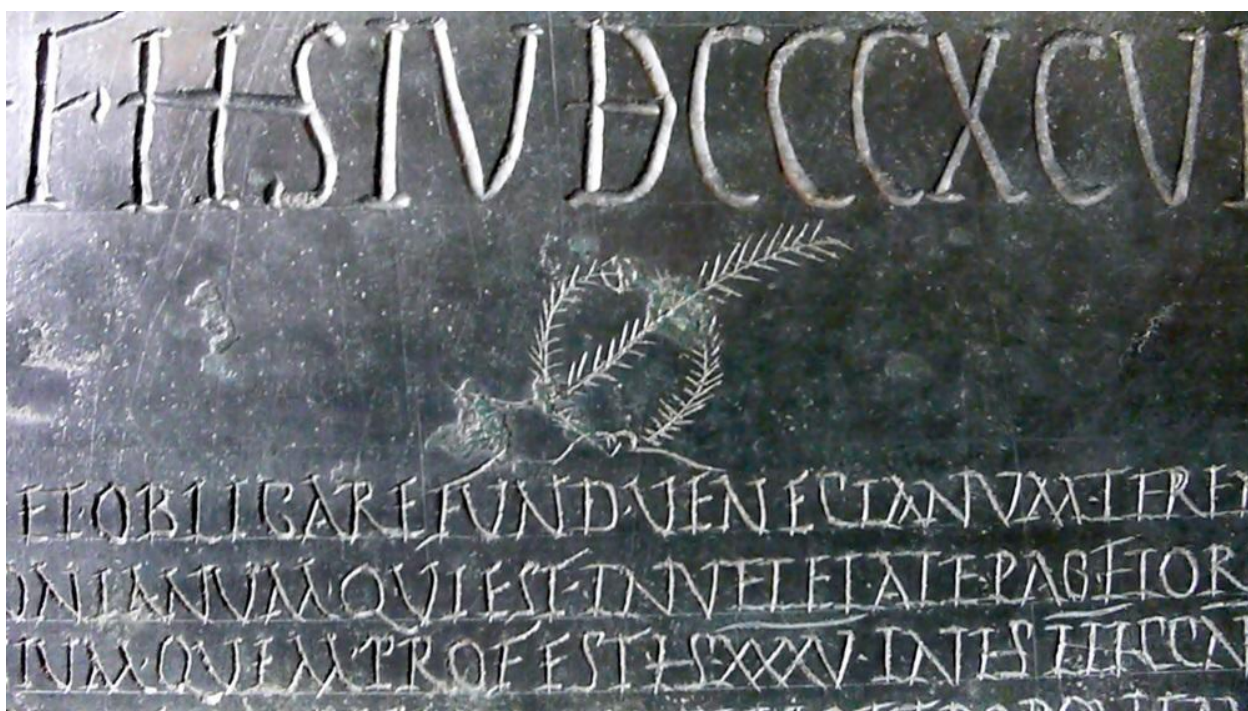 F·HSIVDCCCXCV
ET·OBLIGARE FVND·VENECIANVM·TERE
ONIANVM·QVI EST·IN VELEIATE·PAG·FLOR
IVM·QVEM PROFEST HS·XXXV·IN